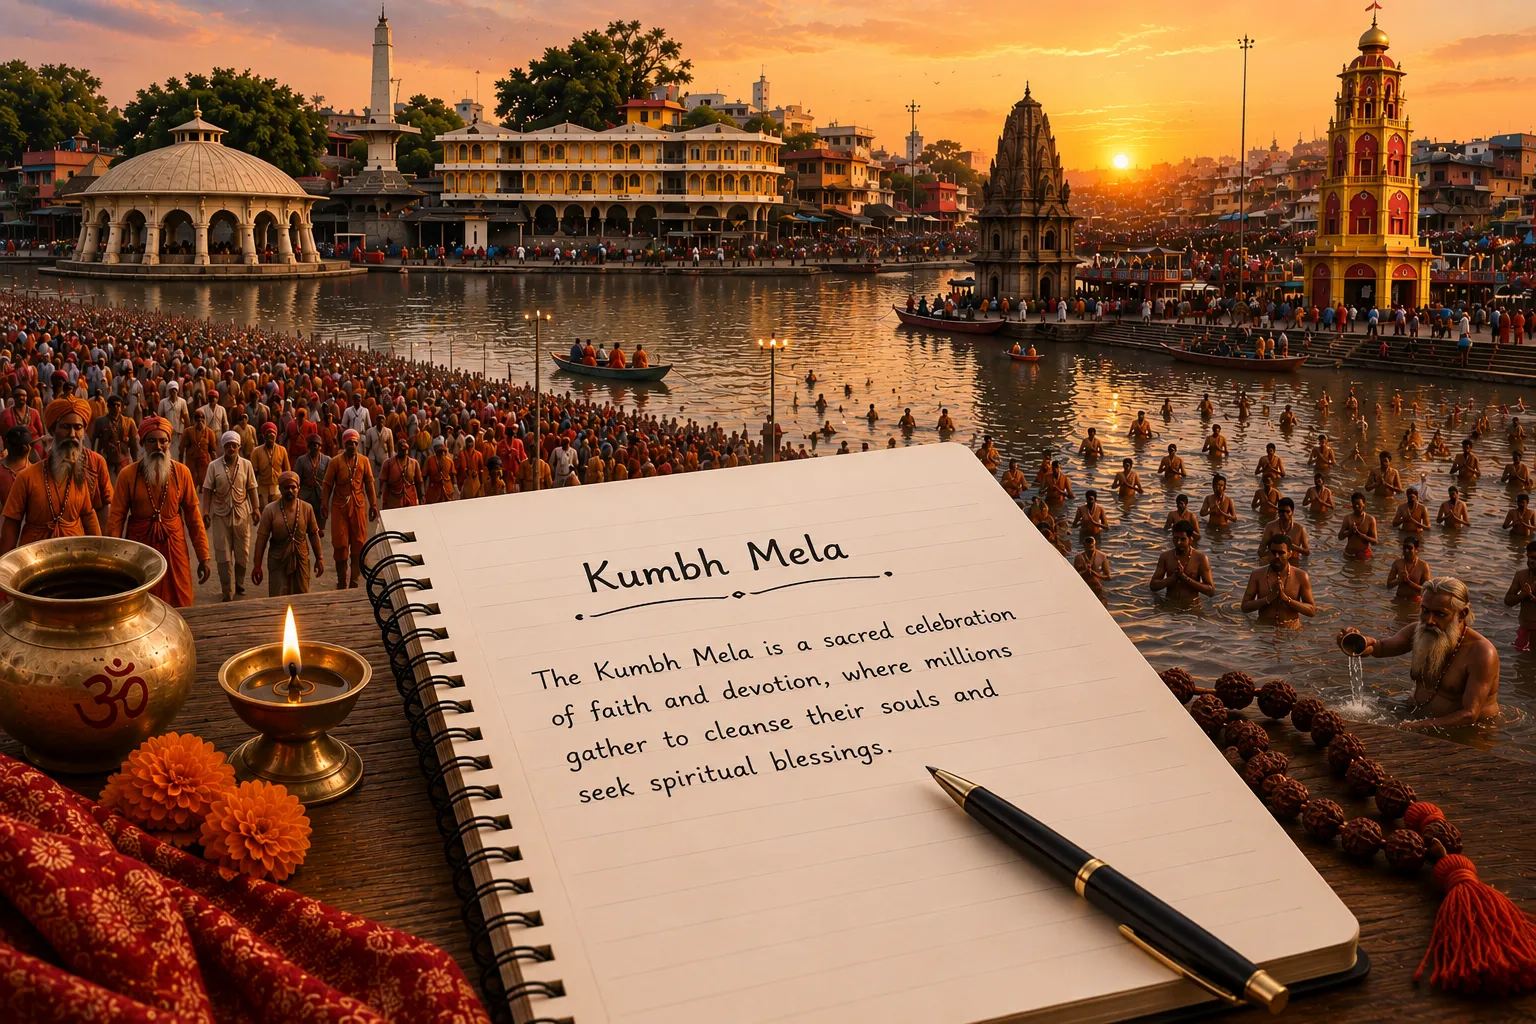 Kumbh Mela
The Kumbh Mela is a sacred celebration
of faith and devotion, where millions
gather to cleanse their souls and
seek spiritual blessings.
ॐ